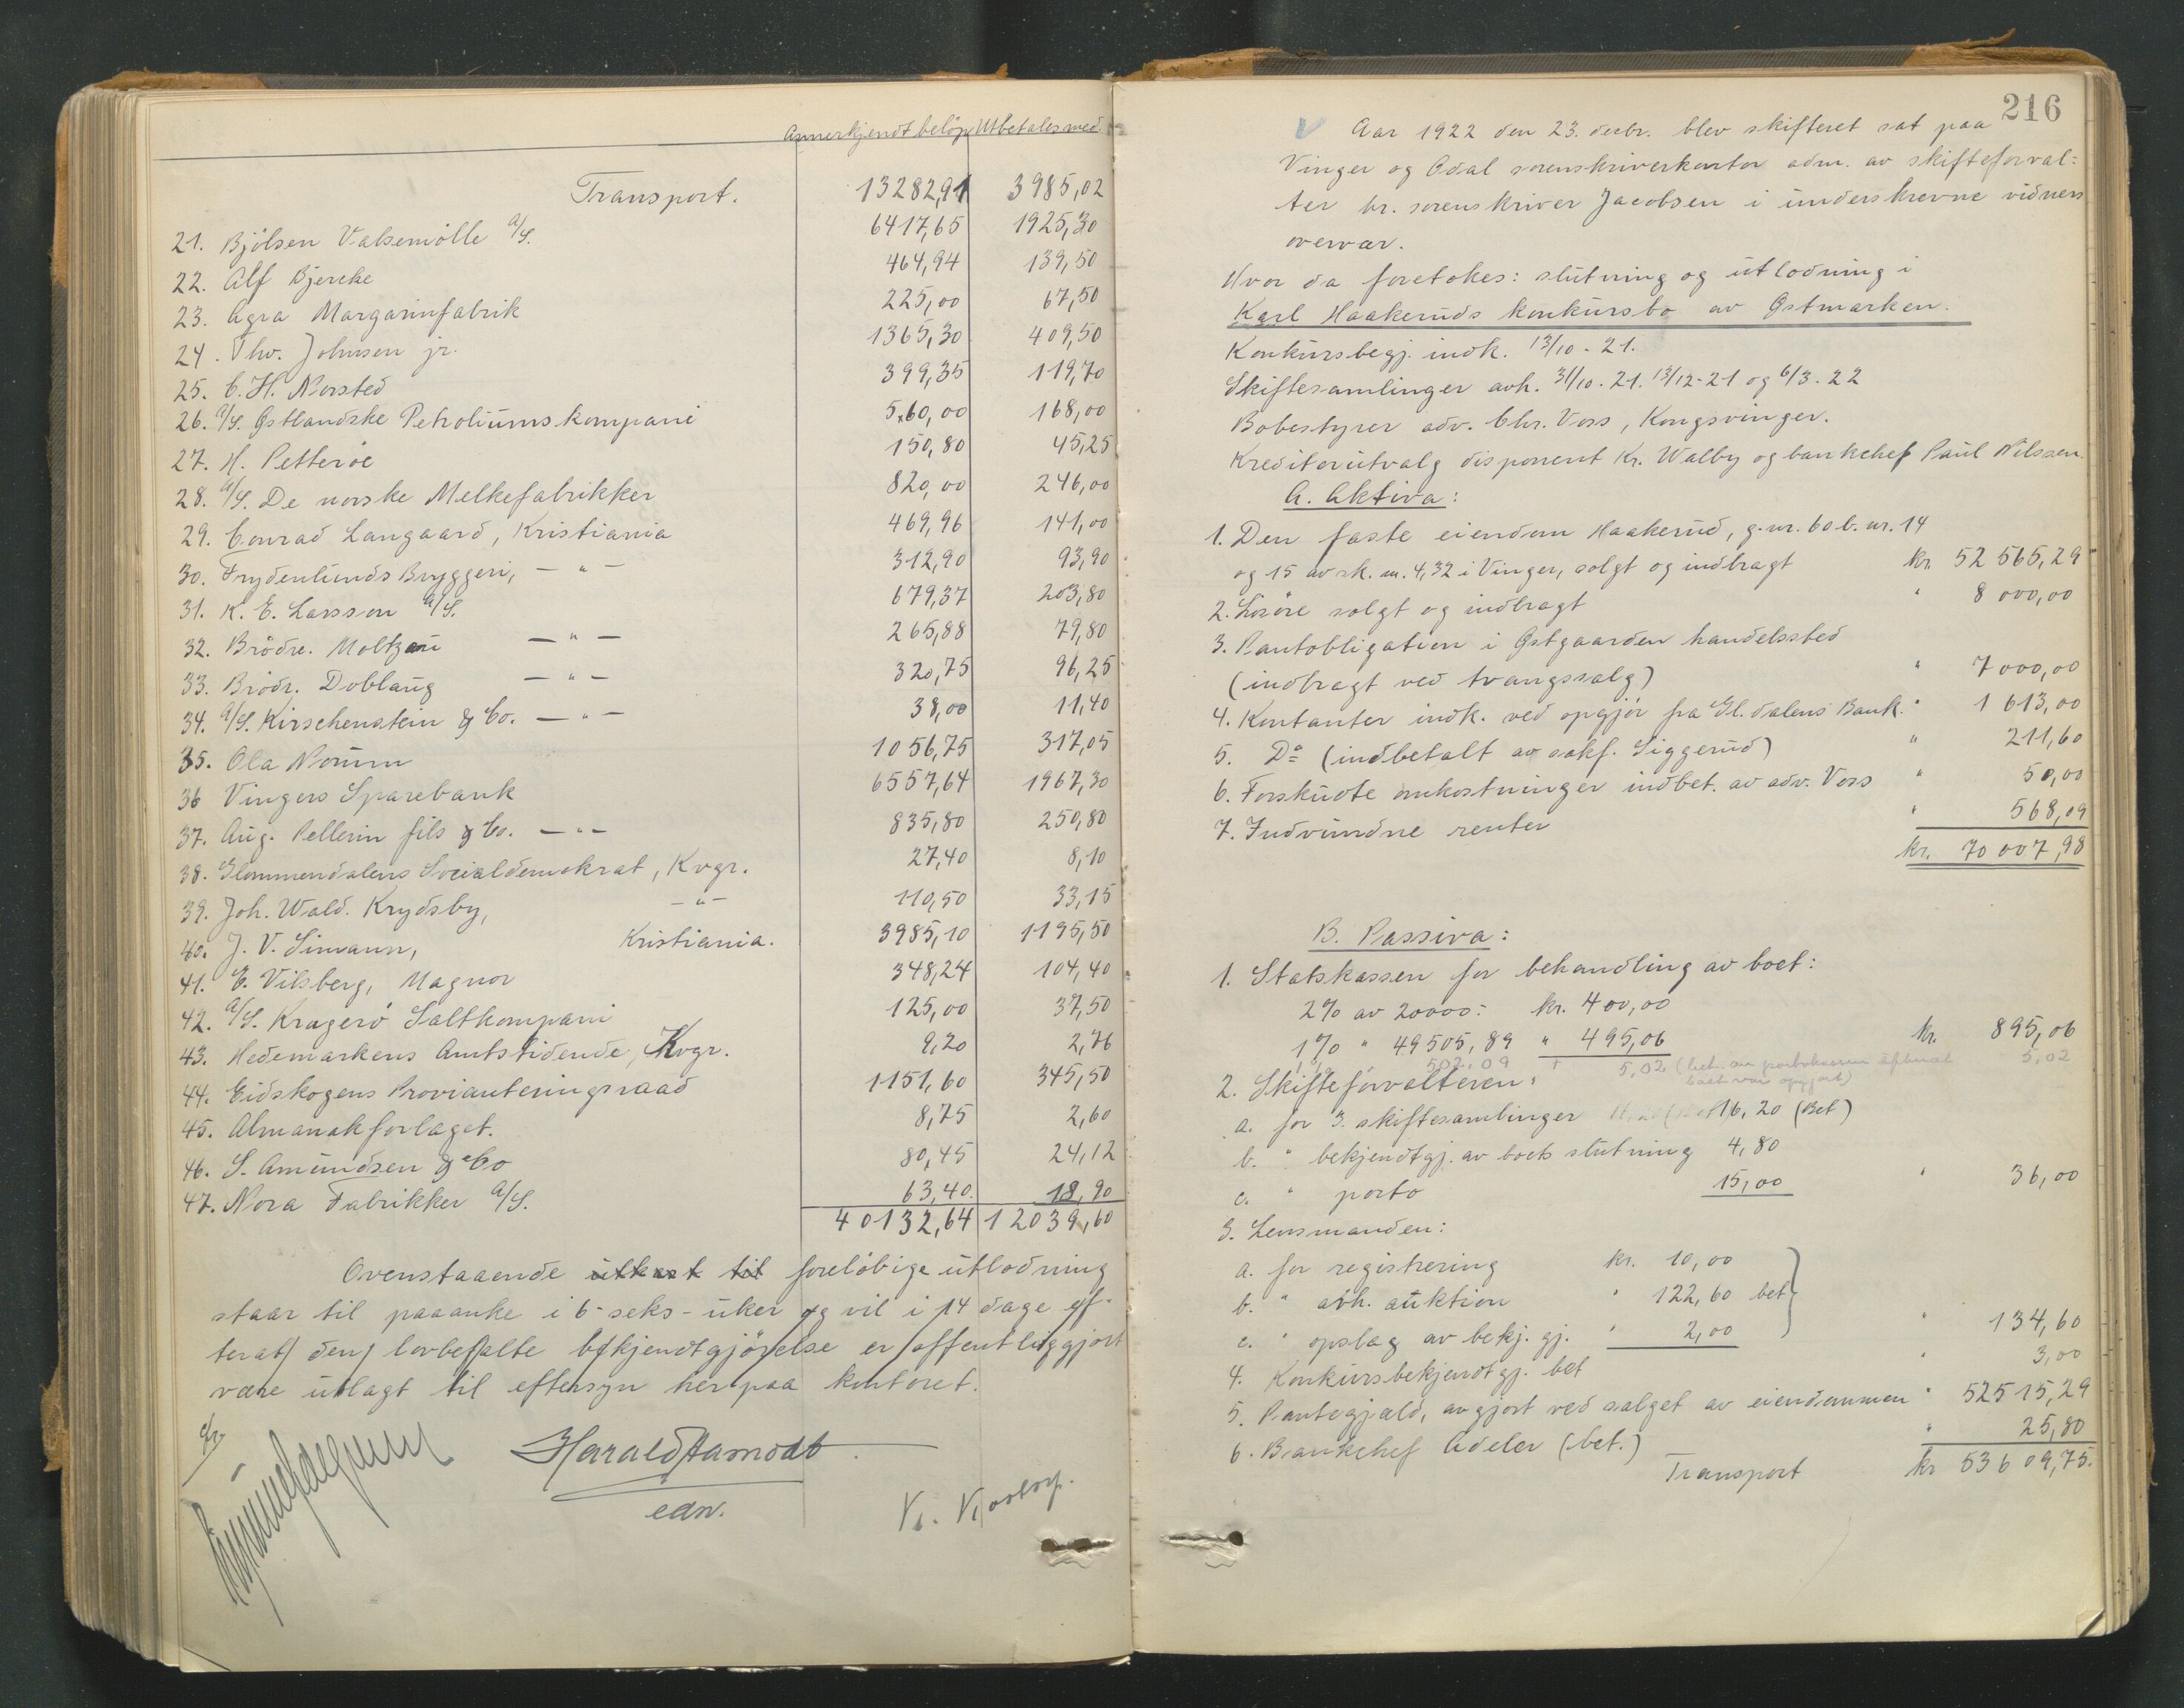 Annerkjendt beløp Utbetales med.
Transport. 13282,91 3985,02
21. Bjölsen Valsemölle A/S. 6417,65 1925,30
22. Alf Bjercke 464,94 139,50
23. Agra Margarinfabrik 225,00 67,50
24. Thv. Johnsen jr. 1365,30 409,50
25. C. H. Norsted 399,35 119,70
26. A/S. Østlandske Petroliumskompani 560,00 168,00
27. H. Petteröe 150,80 45,25
28. A/S. De norske Melkefabrikker 820,00 246,00
29. Conrad Langaard, Kristiania 469,96 141,00
30. Frydenlunds Bryggeri, — " — 312,90 93,90
31. K. E. Larsson A/S. 679,37 203,80
32. Brödre. Moltzau — " — 265,88 79,80
33. Brödr. Dobloug — " — 320,75 96,25
34. A/S. Kirschenstein & Co. — " — 38,00 11,40
35. Ola Norum 1056,75 317,05
36 Vingers Sparebank 6557,64 1967,30
37. Aug. Pellerin fils & Co. — " — 835,80 250,80
38. Glommendalens Socialdemokrat, Kvgr. 27,40 8,10
39. Joh. Wald. Krydsby, — " — 110,50 33,15
40. J. V. Simann, Kristiania. 3985,10 1195,50
41. E. Vilsberg, Magnor 348,24 104,40
42. A/S. Kragerö Saltkompani 125,00 37,50
43. Hedemarkens Amtstidende, Kvgr. 9,20 2,76
44. Eidskogens Provianteringsraad 1151,60 345,50
45. Almanakforlaget. 8,75 2,60
46. S. Amundsen & Co 80,45 24,12
47. Nora Fabrikker A/S. 63,40. 18,90
40132,64 12039,60
Ovenstaaende utkast til foreløbige utlodning
staar til paaanke i 6-seks-uker og vil i 14 dage ef-
terat den lovbefalte bekjendtgjørelse er offentliggjort
være utlagt til eftersyn her paa kontoret.
Harald Aamodt
edsv.
216
Aar 1922 den 23. decbr. blev skifteret sat paa
Vinger og Odal sorenskriverkontor adm. av skifteforval-
ter hr. sorenskriver Jacobsen i underskrevne vidners
overvær.
Hvor da foretokes: slutning og utlodning i
Karl Haakeruds konkursbo av Østmarken.
Konkursbegj. indk. 13/10 - 21.
Skiftesamlinger avh. 31/10 - 21. 13/12 - 21 og 6/3 - 22
Bobestyrer adv. Chr. Voss, Kongsvinger.
Kreditorutvalg disponent Kr. Walby og bankchef Paul Nilssen.
A. Aktiva:
1. Den faste eiendom Haakerud, g. nr. 60 b. nr. 14
og 15 av sk. m. 4,32 i Vinger, solgt og indbragt kr. 52 565,29
2. Lösöre solgt og indbragt " 8 000,00
3. Pantobligation i Østgaarden handelssted
(indbragt ved tvangssalg) " 7 000,00
4. Kontanter indk. ved opgjör fra Gl. dalens Bank. " 1 613,00
5. Do (indbetalt av sakf. Siggerud) " 211,60
6. Forskudte omkostninger indbet. av adv. Voss " 50,00
7. Indvundne renter " 568,09
kr. 70 007,98
B. Passiva:
1. Statskassen for behandling av boet:
2% av 20000:- kr. 400,00
1% " 49505,89 " 495,06 kr. 895,06
1% 502,09 + 5,02 (bet. av portokassen efterat 5,02
boet var opgjort)
2. Skifteforvalteren:
a. for 3 skiftesamlinger 16,20 (Bet)
b. " bekjendtgj. av boets slutning 4,80
c. " porto 15,00 " 36,00
3. Lensmanden:
a. for registrering kr. 10,00
b. " avh. auktion " 122,60 bet
c. " opslag av bekj. gj. " 2,00 " 134,60
4. Konkursbekjendtgj. bet " 3,00
5. Pantegjæld, avgjort ved salget av eiendommen " 52515,29
6. Bankchef Adeler (bet.) " 25,80
Transport kr 53609,75.